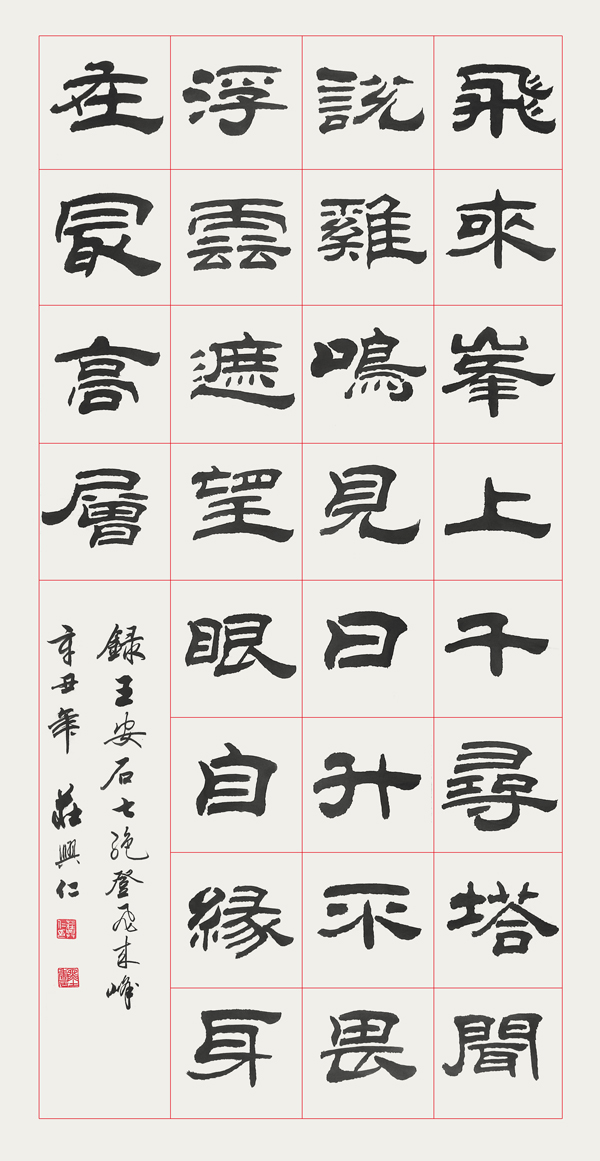 飛來峯上千尋塔聞
說雞鳴見日升不畏
浮雲遮望眼自緣身
在最高層
録王安石七絕登飞来峰
辛丑年 莊興仁